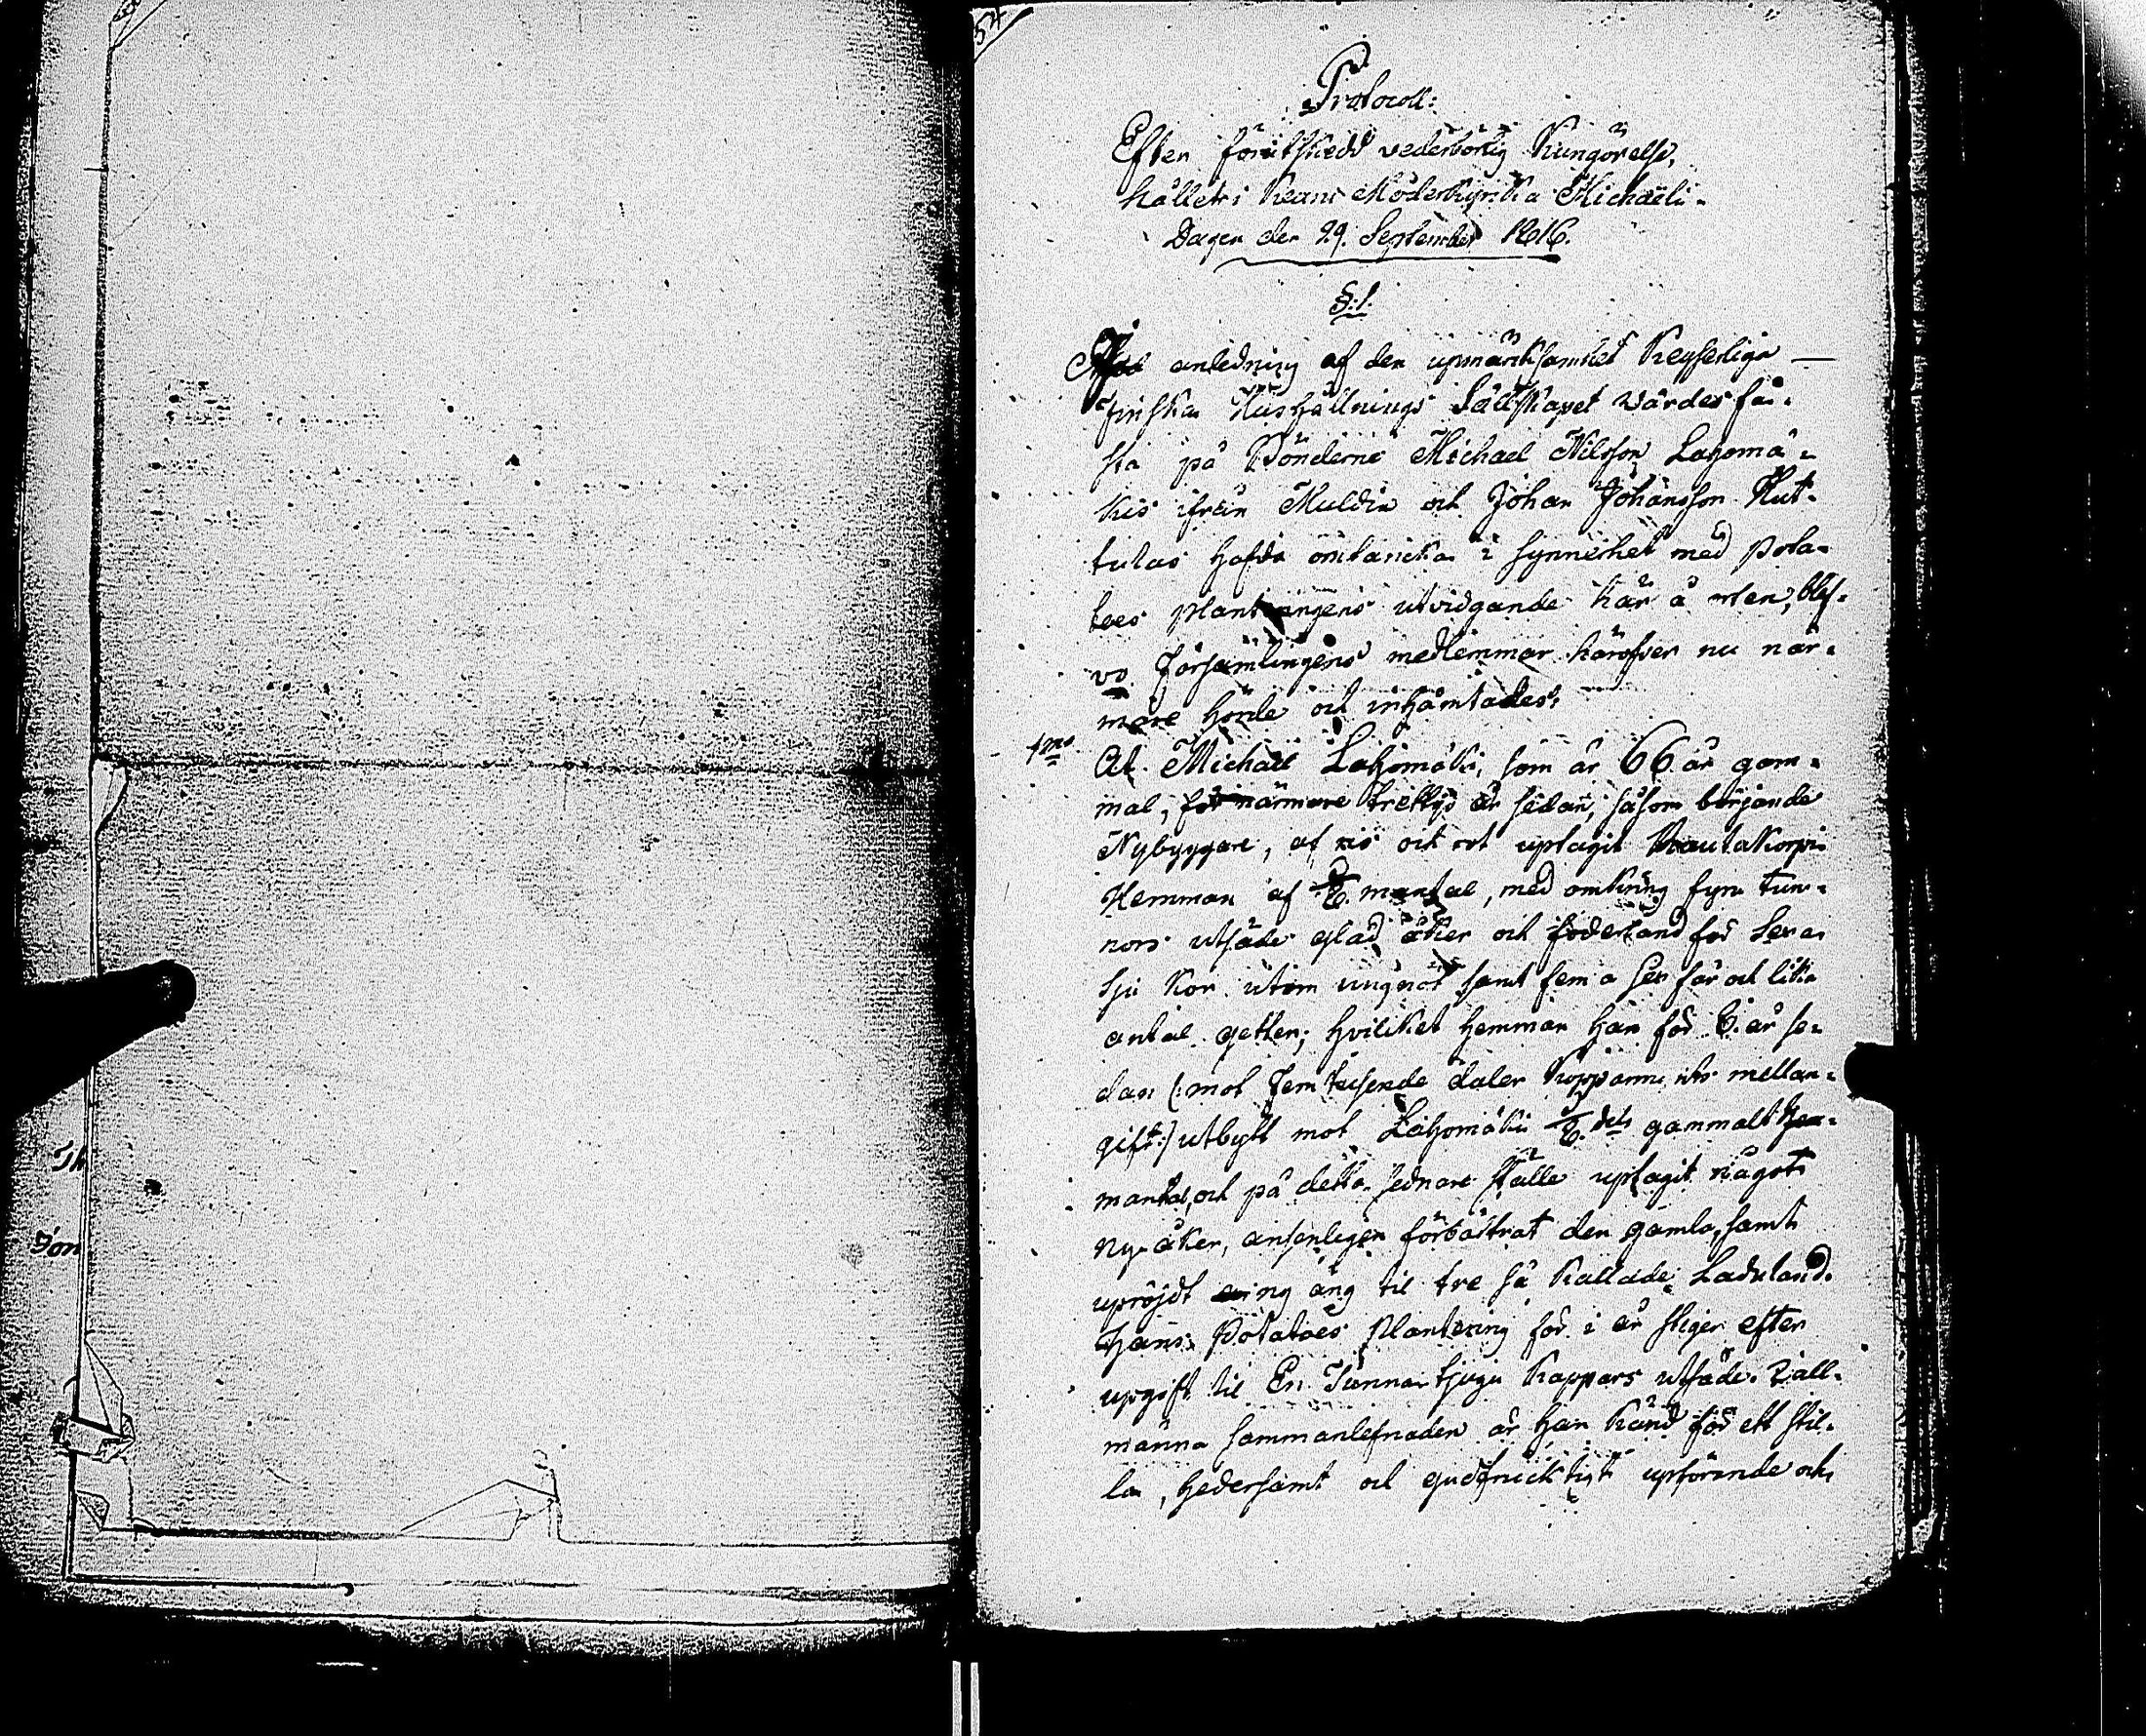 54
Protocoll:
Efter förutskedd vederbörlig Kungörelse,
hållet i Keuru Moderkyrka Michaëli-
Dagen den 29. September 1816.
§:1.
anledning af den upmärksamhet Keyserliga
Finska Hushållnings Sällskapet wärdes fä-
sta på Bönderne Michael Nilsson Lahomä-
kis ifrån Muldia och Johan Johansson Hut-
tulas hafda omtancka i synnerhet med pota-
toes planteringens utvidgande här å orten, blef-
vo Församlingens medlemmar häröfver nu när-
mare hörde och inhämtades:
1mo
At Michaël Lahomäki, som är 66 år gam-
mal, för närmare trettijo år sedan, såsom börjande
Nybyggare, af ris och rot uptagit Rautakorpi
Hemman af mantal, med omkring fyra tun-
nors utsäde glad åker och foderland för sex a
sju Kor utom ungnöt samt fem a sex får och lika
antal getter; hvilket hemman han för 6. år se-
dan (: mot Fem tusende daler Kopparmts mellan-
gift:) utbytt mot Lahomäki dels gammalt hem-
mantal, och på detta sednare ställe uptagit något
ny-åker, ansenligen förbättrat den gamla, samt
upröjdt äng til tre så kallade Laduland.
Hans Potatoes Plantering för i år stiger efter
upgift til En Tunna tjugu Kappars utsäde. I all-
männa sammanlefnaden är han känd för ett stil-
la, hedersamt och gudfrucktigt upförande och
Th
Jon